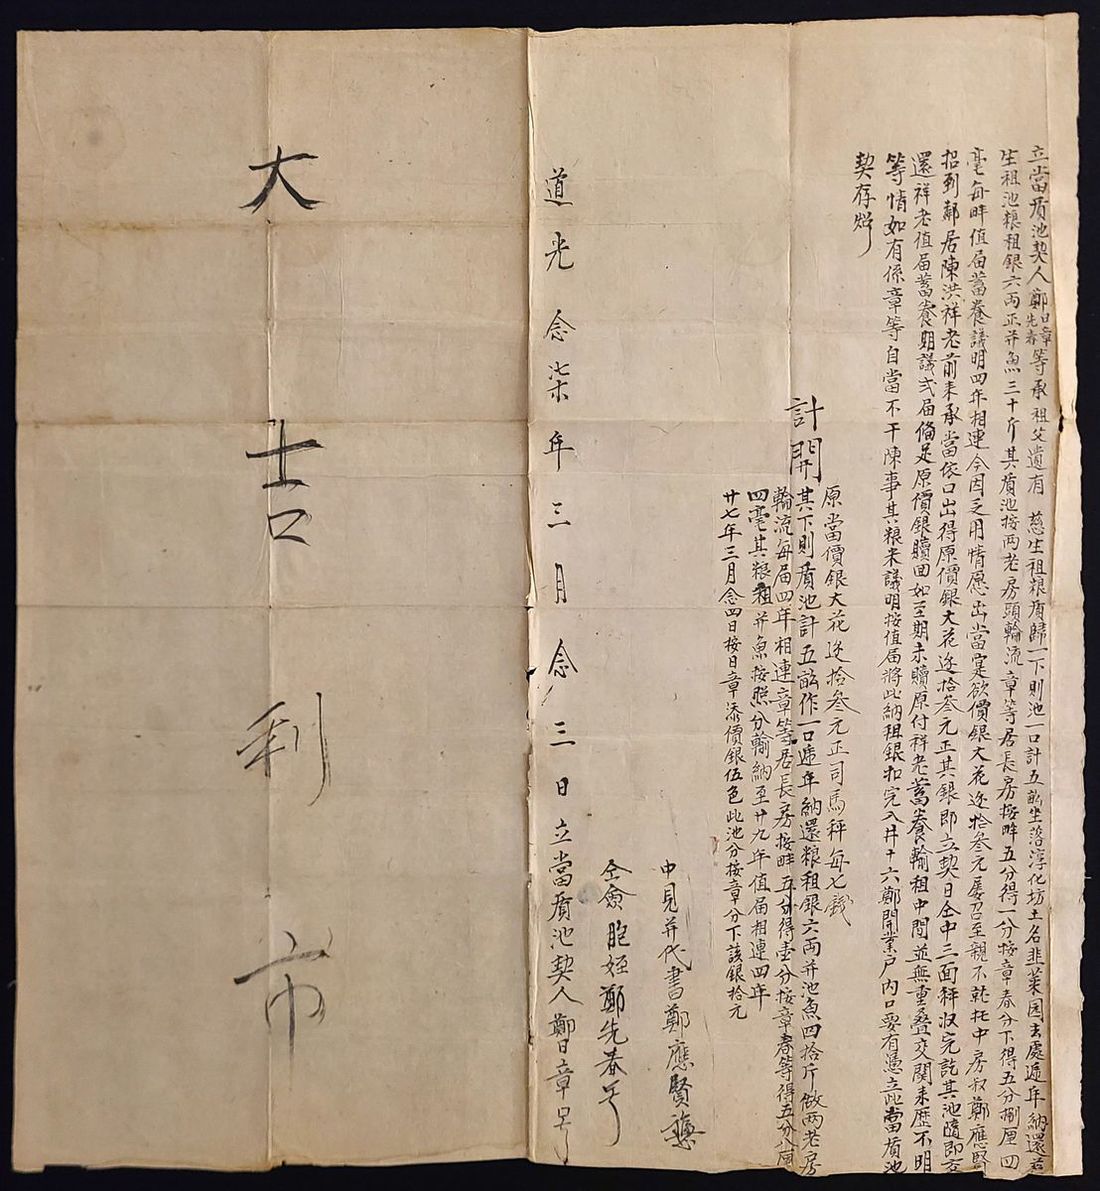 立當質池契人鄭日章先春等承祖父遺有 慈生祖粮質歸一下則池一口計五畝坐落淳化坊土名韭菜园去處遞年納還慈
生祖池粮租銀六両正并魚三十斤其質池按两老房頭輪流章等居長房按畔五分得一分按章春分下得五分捌厘四
毫每畔值届蓄養議明四年相連今因乏用情愿出當寔欲價銀大花边拾叁元屡召至親不就托中房叔鄭應賢
招到鄰居陳洪祥老前来承當依口出得原價銀大花边拾叁元正其銀即立契日仝中三面秤汶完訖其池隨即交
還祥老值届蓄養期議弍届偹足原價銀贖回如至期未贖原付祥老蓄養輸租中間並無重叠交関来歷不明
等情如有係章等自當不干陳事其粮米議明按值届將此納租銀扣完入井十六鄭開業户内口要有憑立此當質池
契存炤
計開
原當價銀大花边拾叁元正司馬秤每七錢
其下則質池計五畝作一口遞年納還粮租銀六両并池魚四拾斤做两老房
輪流每届四年相連章等居長房按畔五分得壹分按章春等得五分八厘
四毫其粮租并魚按照分輸納至廿九年值届相連四年
廿七年三月念四日按日章添價銀伍色此池分按章分下該銀拾元
中見并代書鄭應賢
仝僉胞姪鄭先春
道光念柒年三月念三日立當質池契人鄭日章
大吉利市